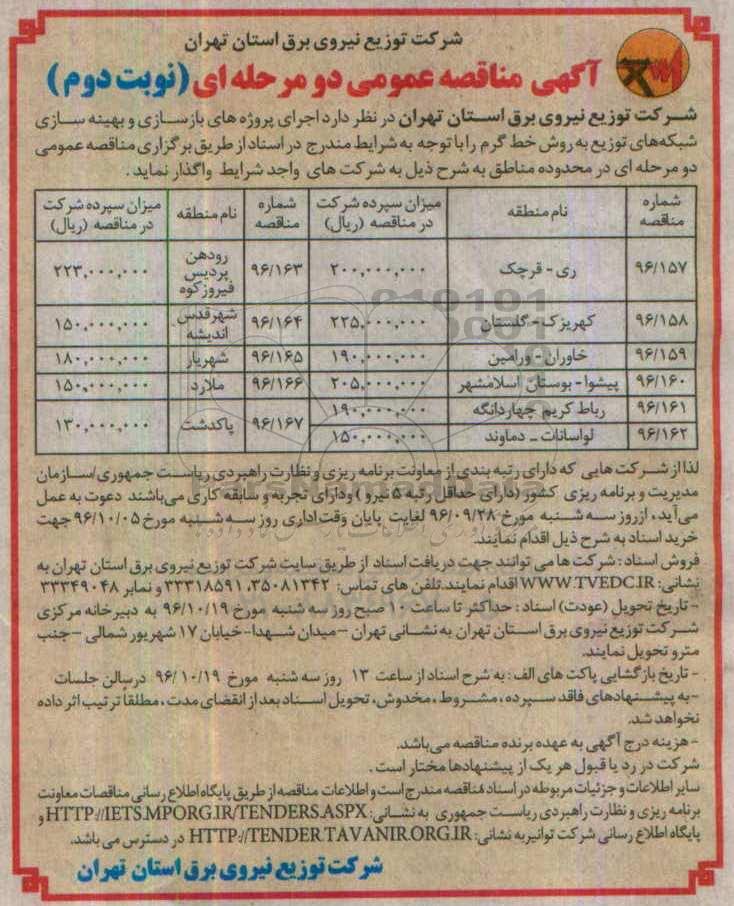 شرکت توزیع نیروی برق استان تهران
آگهی مناقصه عمومی دو مرحله ای (نوبت دوم)
شرکت توزیع نیروی برق استان تهران در نظر دارد اجرای پروژه های بازسازی و بهینه سازی
شبکه‌های توزیع به روش خط گرم را با توجه به شرایط مندرج در اسناد از طریق برگزاری مناقصه عمومی
دو مرحله ای در محدوده مناطق به شرح ذیل به شرکت های واجد شرایط واگذار نماید.
شماره مناقصه | نام منطقه | میزان سپرده شرکت در مناقصه (ریال) | شماره مناقصه | نام منطقه | میزان سپرده شرکت در مناقصه (ریال)
۹۶/۱۵۷ | ری - قرچک | ۲۰۰,۰۰۰,۰۰۰ | ۹۶/۱۶۳ | رودهن پردیس فیروزکوه | ۲۲۳,۰۰۰,۰۰۰
۹۶/۱۵۸ | کهریزک - گلستان | ۲۲۵,۰۰۰,۰۰۰ | ۹۶/۱۶۴ | شهرقدس اندیشه | ۱۵۰,۰۰۰,۰۰۰
۹۶/۱۵۹ | خاوران - ورامین | ۱۹۰,۰۰۰,۰۰۰ | ۹۶/۱۶۵ | شهریار | ۱۸۰,۰۰۰,۰۰۰
۹۶/۱۶۰ | پیشوا - بوستان اسلامشهر | ۲۰۵,۰۰۰,۰۰۰ | ۹۶/۱۶۶ | ملارد | ۱۵۰,۰۰۰,۰۰۰
۹۶/۱۶۱ | رباط کریم چهاردانگه | ۱۹۰,۰۰۰,۰۰۰ | ۹۶/۱۶۷ | پاکدشت | ۱۳۰,۰۰۰,۰۰۰
۹۶/۱۶۲ | لواسانات - دماوند | ۱۵۰,۰۰۰,۰۰۰
لذا از شرکت هایی که دارای رتبه بندی از معاونت برنامه ریزی و نظارت راهبردی ریاست جمهوری/سازمان
مدیریت و برنامه ریزی کشور (دارای حداقل رتبه ۵ نیرو) و دارای تجربه و سابقه کاری می‌باشند دعوت به عمل
می‌آید، از روز سه شنبه مورخ ۹۶/۰۹/۲۸ لغایت پایان وقت اداری روز سه شنبه مورخ ۹۶/۱۰/۰۵ جهت
خرید اسناد به شرح ذیل اقدام نمایند.
فروش اسناد: شرکت ها می توانند جهت دریافت اسناد از طریق سایت شرکت توزیع نیروی برق استان تهران به
نشانی: WWW.TVEDC.IR اقدام نمایند. تلفن های تماس: ۳۵۰۸۱۳۴۲، ۳۳۳۱۸۵۹۱ و نمابر ۳۳۳۴۹۰۴۸
- تاریخ تحویل (عودت) اسناد: حداکثر تا ساعت ۱۰ صبح روز سه شنبه مورخ ۹۶/۱۰/۱۹ به دبیرخانه مرکزی
شرکت توزیع نیروی برق استان تهران به نشانی تهران - میدان شهدا - خیابان ۱۷ شهریور شمالی - جنب
مترو تحویل نمایند.
- تاریخ بازگشایی پاکت های الف: به شرح اسناد از ساعت ۱۳ روز سه شنبه مورخ ۹۶/۱۰/۱۹ در سالن جلسات
- به پیشنهادهای فاقد سپرده، مشروط، مخدوش، تحویل اسناد بعد از انقضای مدت، مطلقا ترتیب اثر داده
نخواهد شد.
- هزینه درج آگهی به عهده برنده مناقصه می‌باشد.
شرکت در رد یا قبول هر یک از پیشنهادها مختار است.
سایر اطلاعات و جزئیات مربوطه در اسناد مناقصه مندرج است و اطلاعات مناقصه از طریق پایگاه اطلاع رسانی مناقصات معاونت
برنامه ریزی و نظارت راهبردی ریاست جمهوری به نشانی: HTTP://IETS.MPORG.IR/TENDERS.ASPX و
پایگاه اطلاع رسانی شرکت توانیر به نشانی: HTTP://TENDER.TAVANIR.ORG.IR در دسترس می باشد.
شرکت توزیع نیروی برق استان تهران